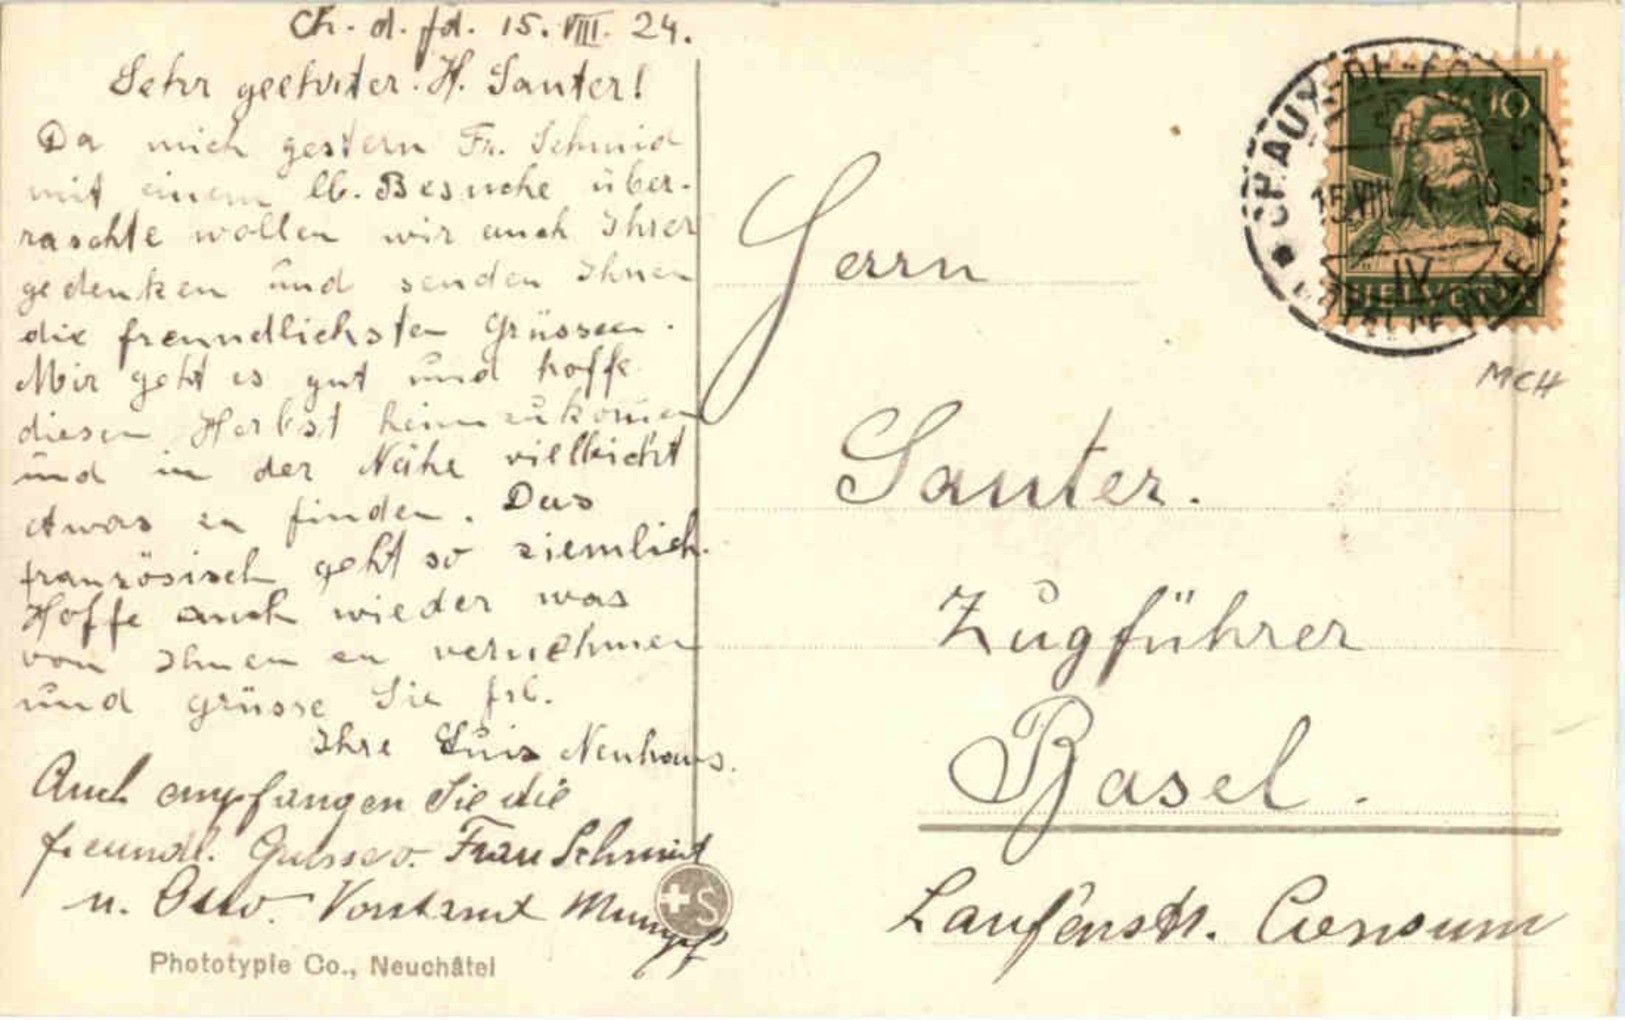 Ch. d. fd. 15. VIII. 24.
Sehr geehrter H. Sauter!
Da mich gestern Fr. Schmid
mit einem lb. Besuche über-
raschte wollen wir auch Ihrer
gedenken und senden Ihnen
die freundlichsten Grüssen.
Mir geht es gut und hoffe
diesen Herbst heimzukomen
und in der Nähe vielleicht
etwas zu finden. Das
französisch geht so ziemlich.
Hoffe auch wieder was
von Ihnen zu vernehmen
und grüsse Sie frl.
Ihre Luis Neuhaus.
Auch empfangen Sie die
freundl. Frau Schmit
u. Otto. Vorstand Mumpf
Phototypie Co., Neuchâtel
+S
Herrn
Sauter.
Zugführer
Basel.
Laufenstr. Consum
CHAUX-DE-FONDS
15.VIII.24
IV
10
HELVETIA
MCH